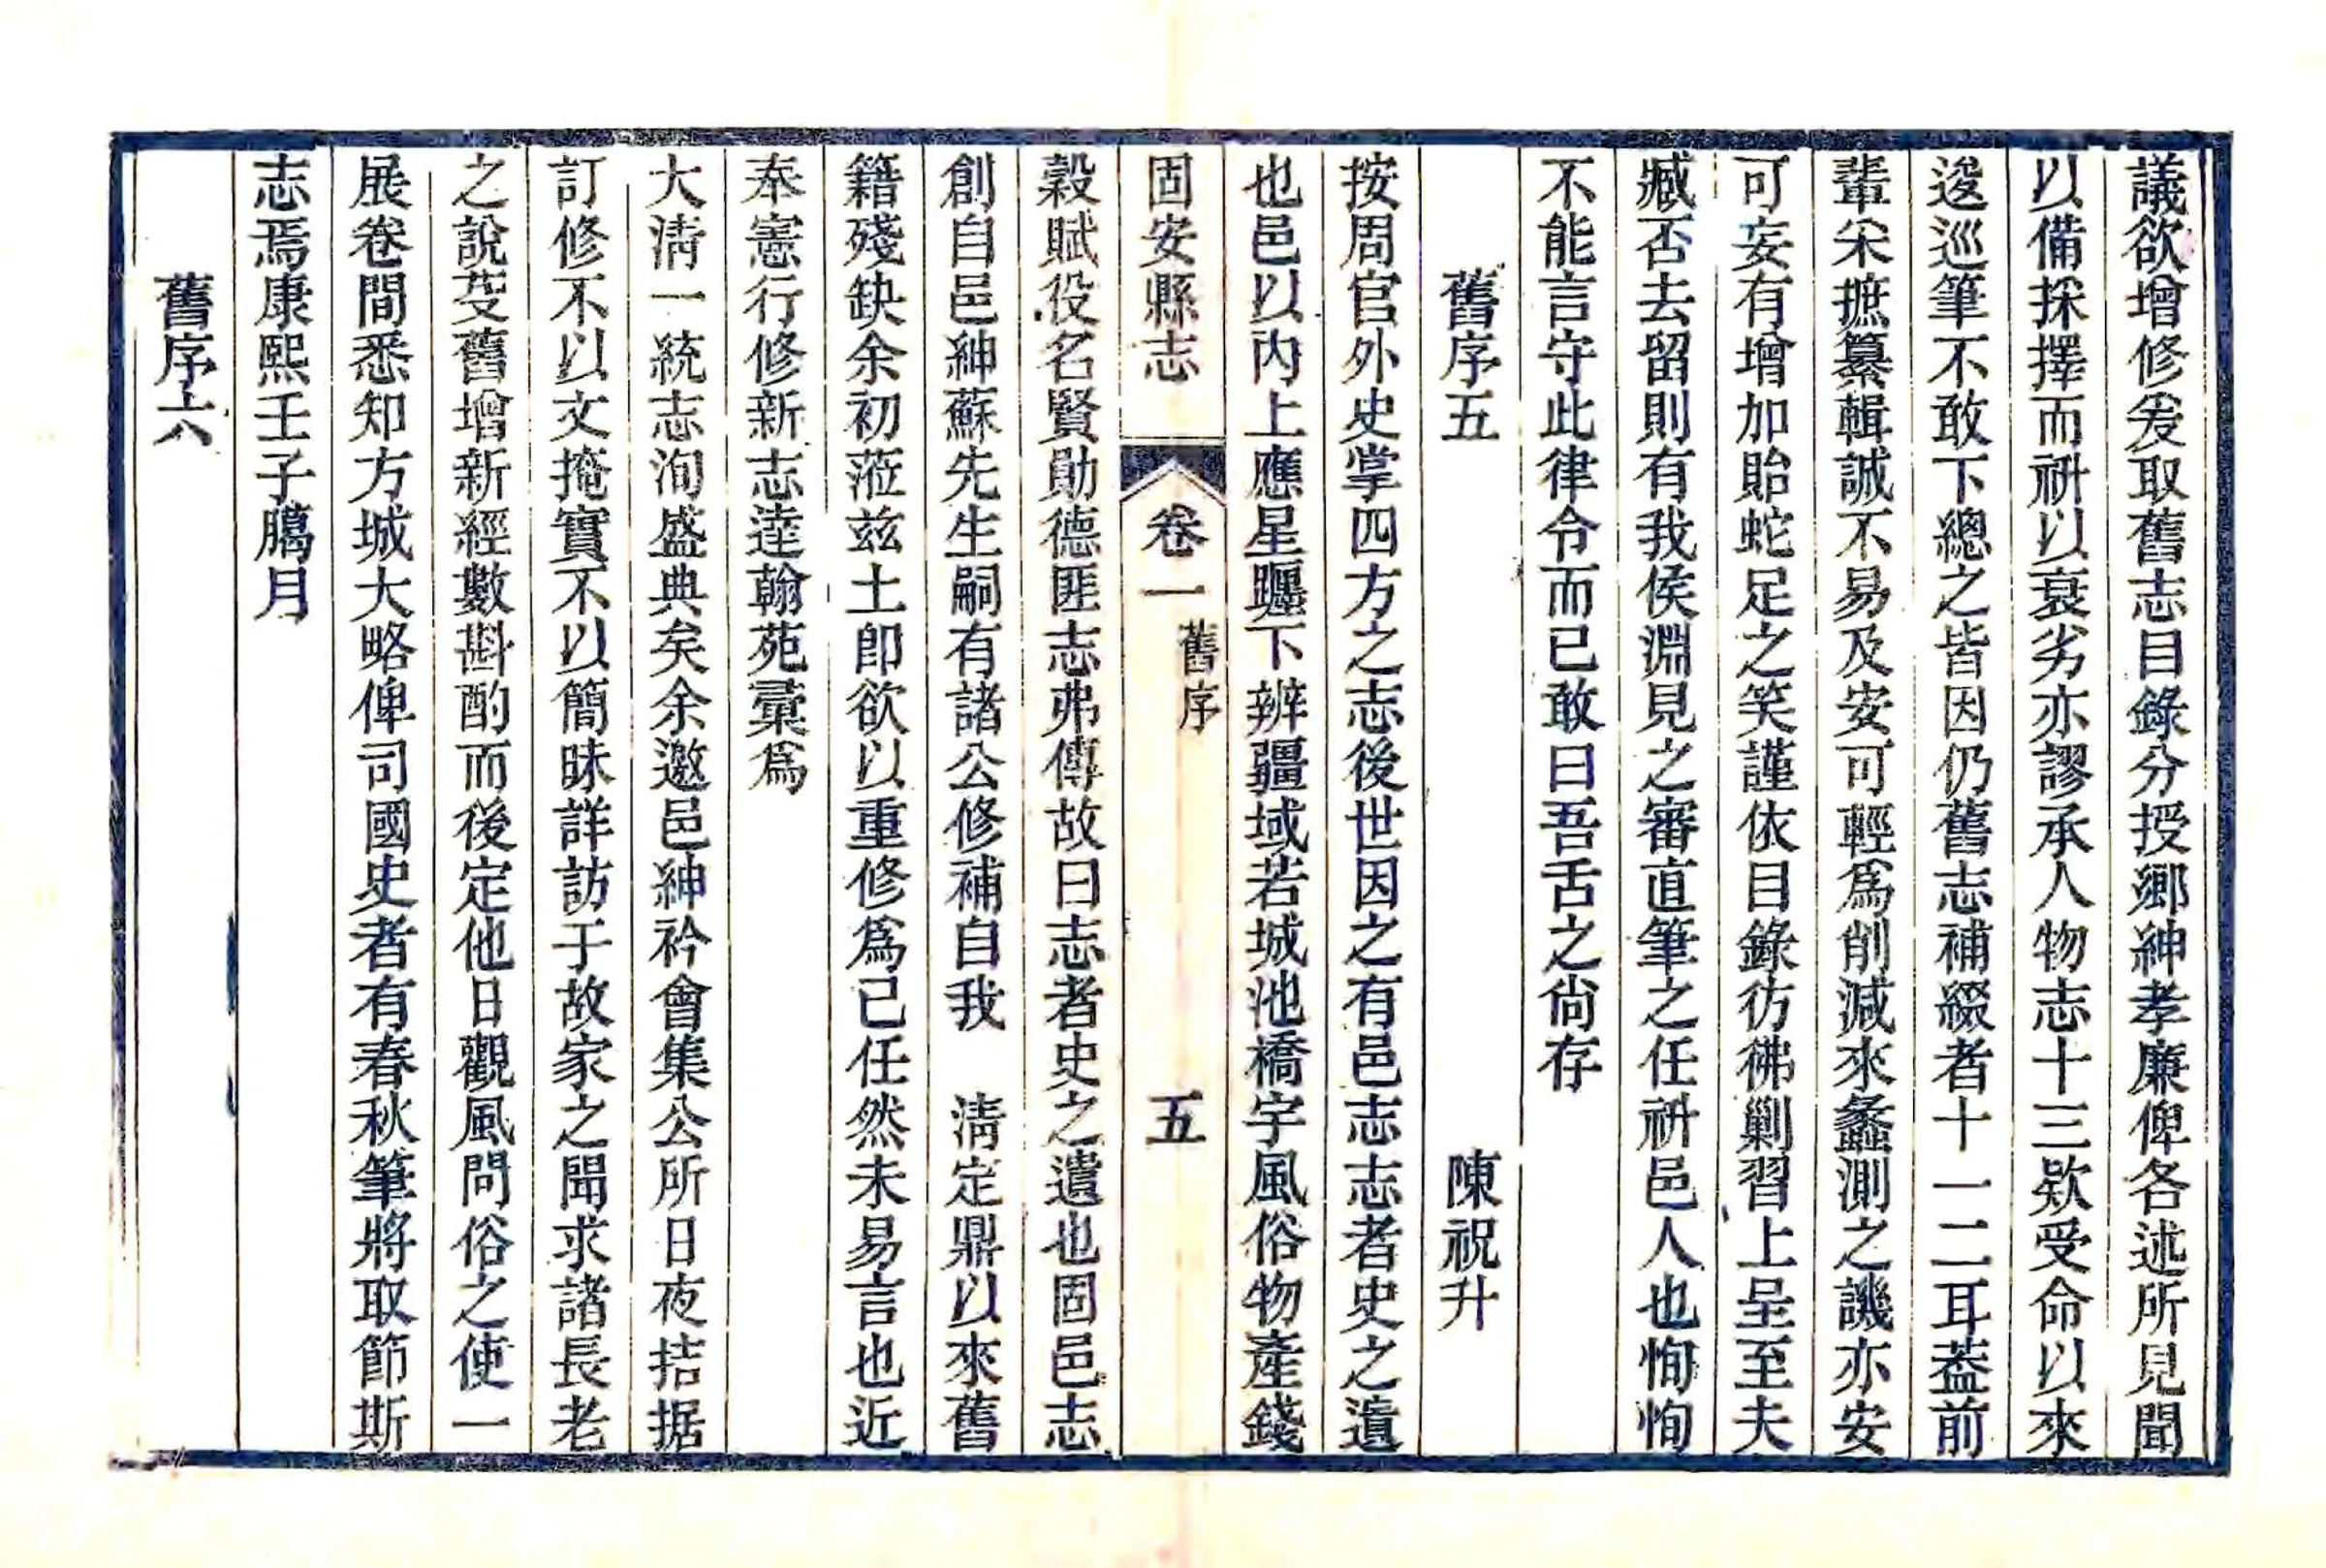 議欲增修爰取舊志目錄分授鄉紳孝廉俾各述所見聞
以備採擇而祈以衰劣亦謬承人物志十三欵受命以來
逡巡筆不敢下總之皆因仍舊志補綴者十一二耳葢前
輩采摭纂輯誠不易及安可輕爲削減來蠡測之譏亦安
可妄有增加貽蛇足之笑謹依目錄彷彿剿習上呈至夫
臧否去留則有我侯淵見之審直筆之任祈邑人也恂恂
不能言守此律令而已敢曰吾舌之尙存
舊序五 陳祝升
按周官外史掌四方之志後世因之有邑志志者史之遺
也邑以內上應星躔下辨疆域若城池橋宇風俗物產錢
固安縣志 卷一 舊序 五
穀賦役名賢勛德匪志弗傳故曰志者史之遺也固邑志
創自邑紳蘇先生嗣有諸公修補自我 淸定鼎以來舊
籍殘缺余初蒞玆土卽欲以重修爲己任然未易言也近
奉憲行修新志逹翰苑彙爲
大淸一統志洵盛典矣余邀邑紳衿會集公所日夜拮据
訂修不以文掩實不以簡昧詳訪于故家之聞求諸長老
之說芟舊增新經數斟酌而後定他日觀風問俗之使一
展卷間悉知方城大略俾司國史者有春秋筆將取節斯
志焉康熙壬子臈月
舊序六